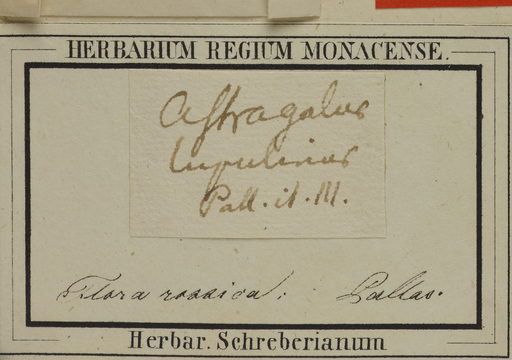 HERBARIUM REGIUM MONACENSE.
Astragalus
lupulinus
Pall. it. III.
Flora rossica. Pallas.
Herbar. Schreberianum